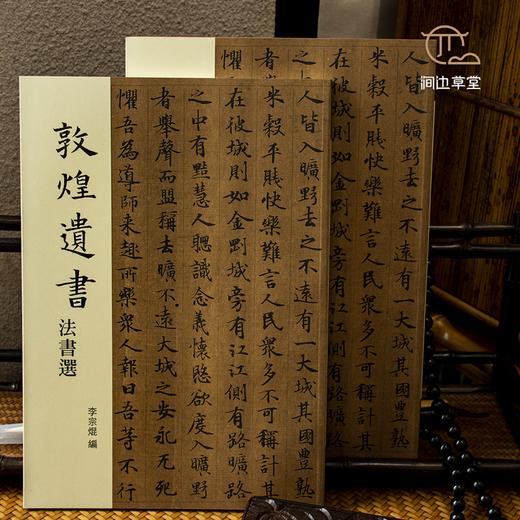 澗边草堂
敦煌遺書
法書選
李宗焜 編
人皆入曠野去之不遠有一大城其國豐熟
米穀平賤快樂難言人民衆多不可計其
在彼城則如金剛城旁有江江側有路曠路
之中有黠慧人聰識念義懷愍欲度入曠野
者舉聲而盟稱去曠不遠大城之安永无死
懼吾為導師來趣所樂衆人報曰吾等不行
人皆入曠野去之不遠有一大城其國豐熟
米穀平賤快樂難言人民衆多不可計其
在彼城則如金剛城旁有江江側有路曠路